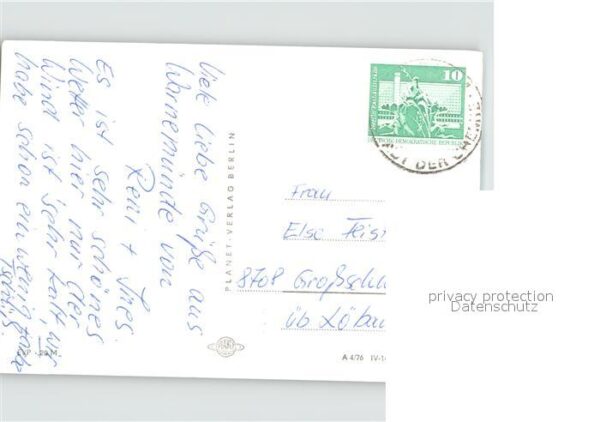 Viele liebe Grüße aus
Warnemünde von
Reni + Ines.
Es ist sehr schönes
Wetter hier nur der
Wind ist sehr kalt, wir
habe schon ein wenig Farbe
Tschüß.
EVP -,20 M
PLANET-VERLAG BERLIN
A 4/76 IV-14
10
DEUTSCHE DEMOKRATISCHE REPUBLIK
DER
Frau
Else Feist
8708 Großsch
üb Löbau
privacy protection
Datenschutz